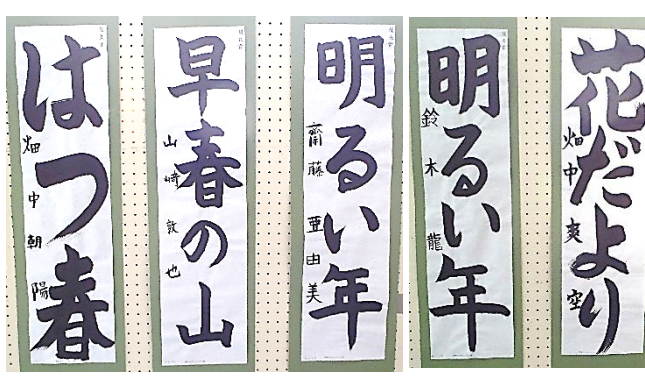 はつ春
畑中朝陽
早春の山
山崎敦也
明るい年
齋藤亜由美
明るい年
鈴木龍
花だより
畑中爽空